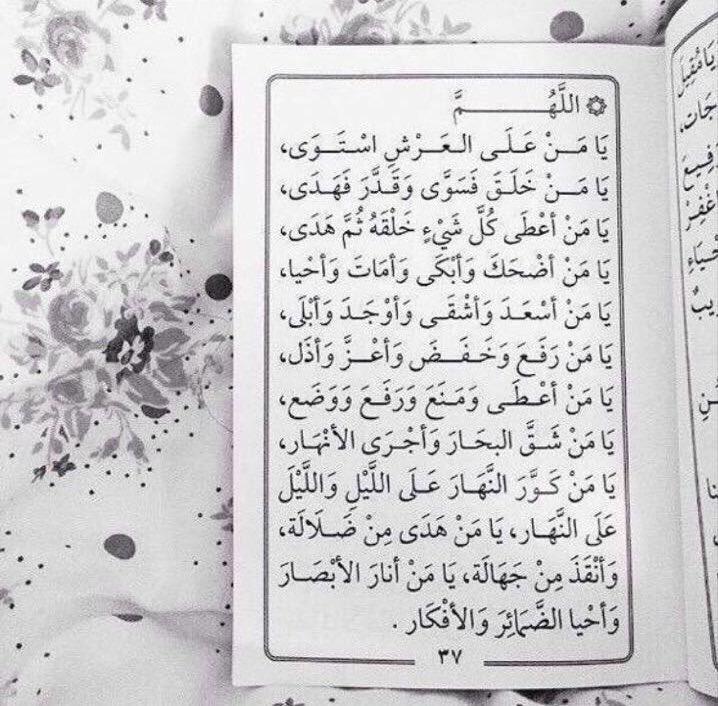 ۞ اللَّهُـــــــمَّ
يَا مَـنْ عَلَـى الـعَـرْشِ اسْـتَـوَى،
يَا مَـنْ خَلَـقَ فَسَوَّى وَقَـدَّرَ فَهَـدَى،
يَا مَنْ أعْطَى كُلَّ شَيْءٍ خَلْقَهُ ثُمَّ هَدَى،
يَا مَنْ أضْحَكَ وَأبْكَى وَأمَاتَ وَأحْيا،
يَا مَنْ أسْعَدَ وَأشْقَـى وَأوْجَـدَ وَأبْلَى،
يَا مَنْ رَفَعَ وَخَـفَـضَ وَأعَـزَّ وَأذَل،
يَا مَنْ أعْطَـى وَمَنَعَ وَرَفَـعَ وَوَضَع،
يَا مَنْ شَقَّ البحَارَ وَأجْرَى الأنْهَار،
يَا مَنْ كَـوَّرَ النَّهَارَ عَلَى اللَّيْلِ وَاللَّيْلَ
عَلَى النَّهَار، يَا مَنْ هَدَى مِنْ ضَـلَالَة،
وَأنْقَذَ مِنْ جَهَالَة، يَا مَنْ أنارَ الأبْصَـارَ
وَأحْيا الضَّمَائِرَ وَالأفْكَار .
٣٧
يَا مُقِيلَ